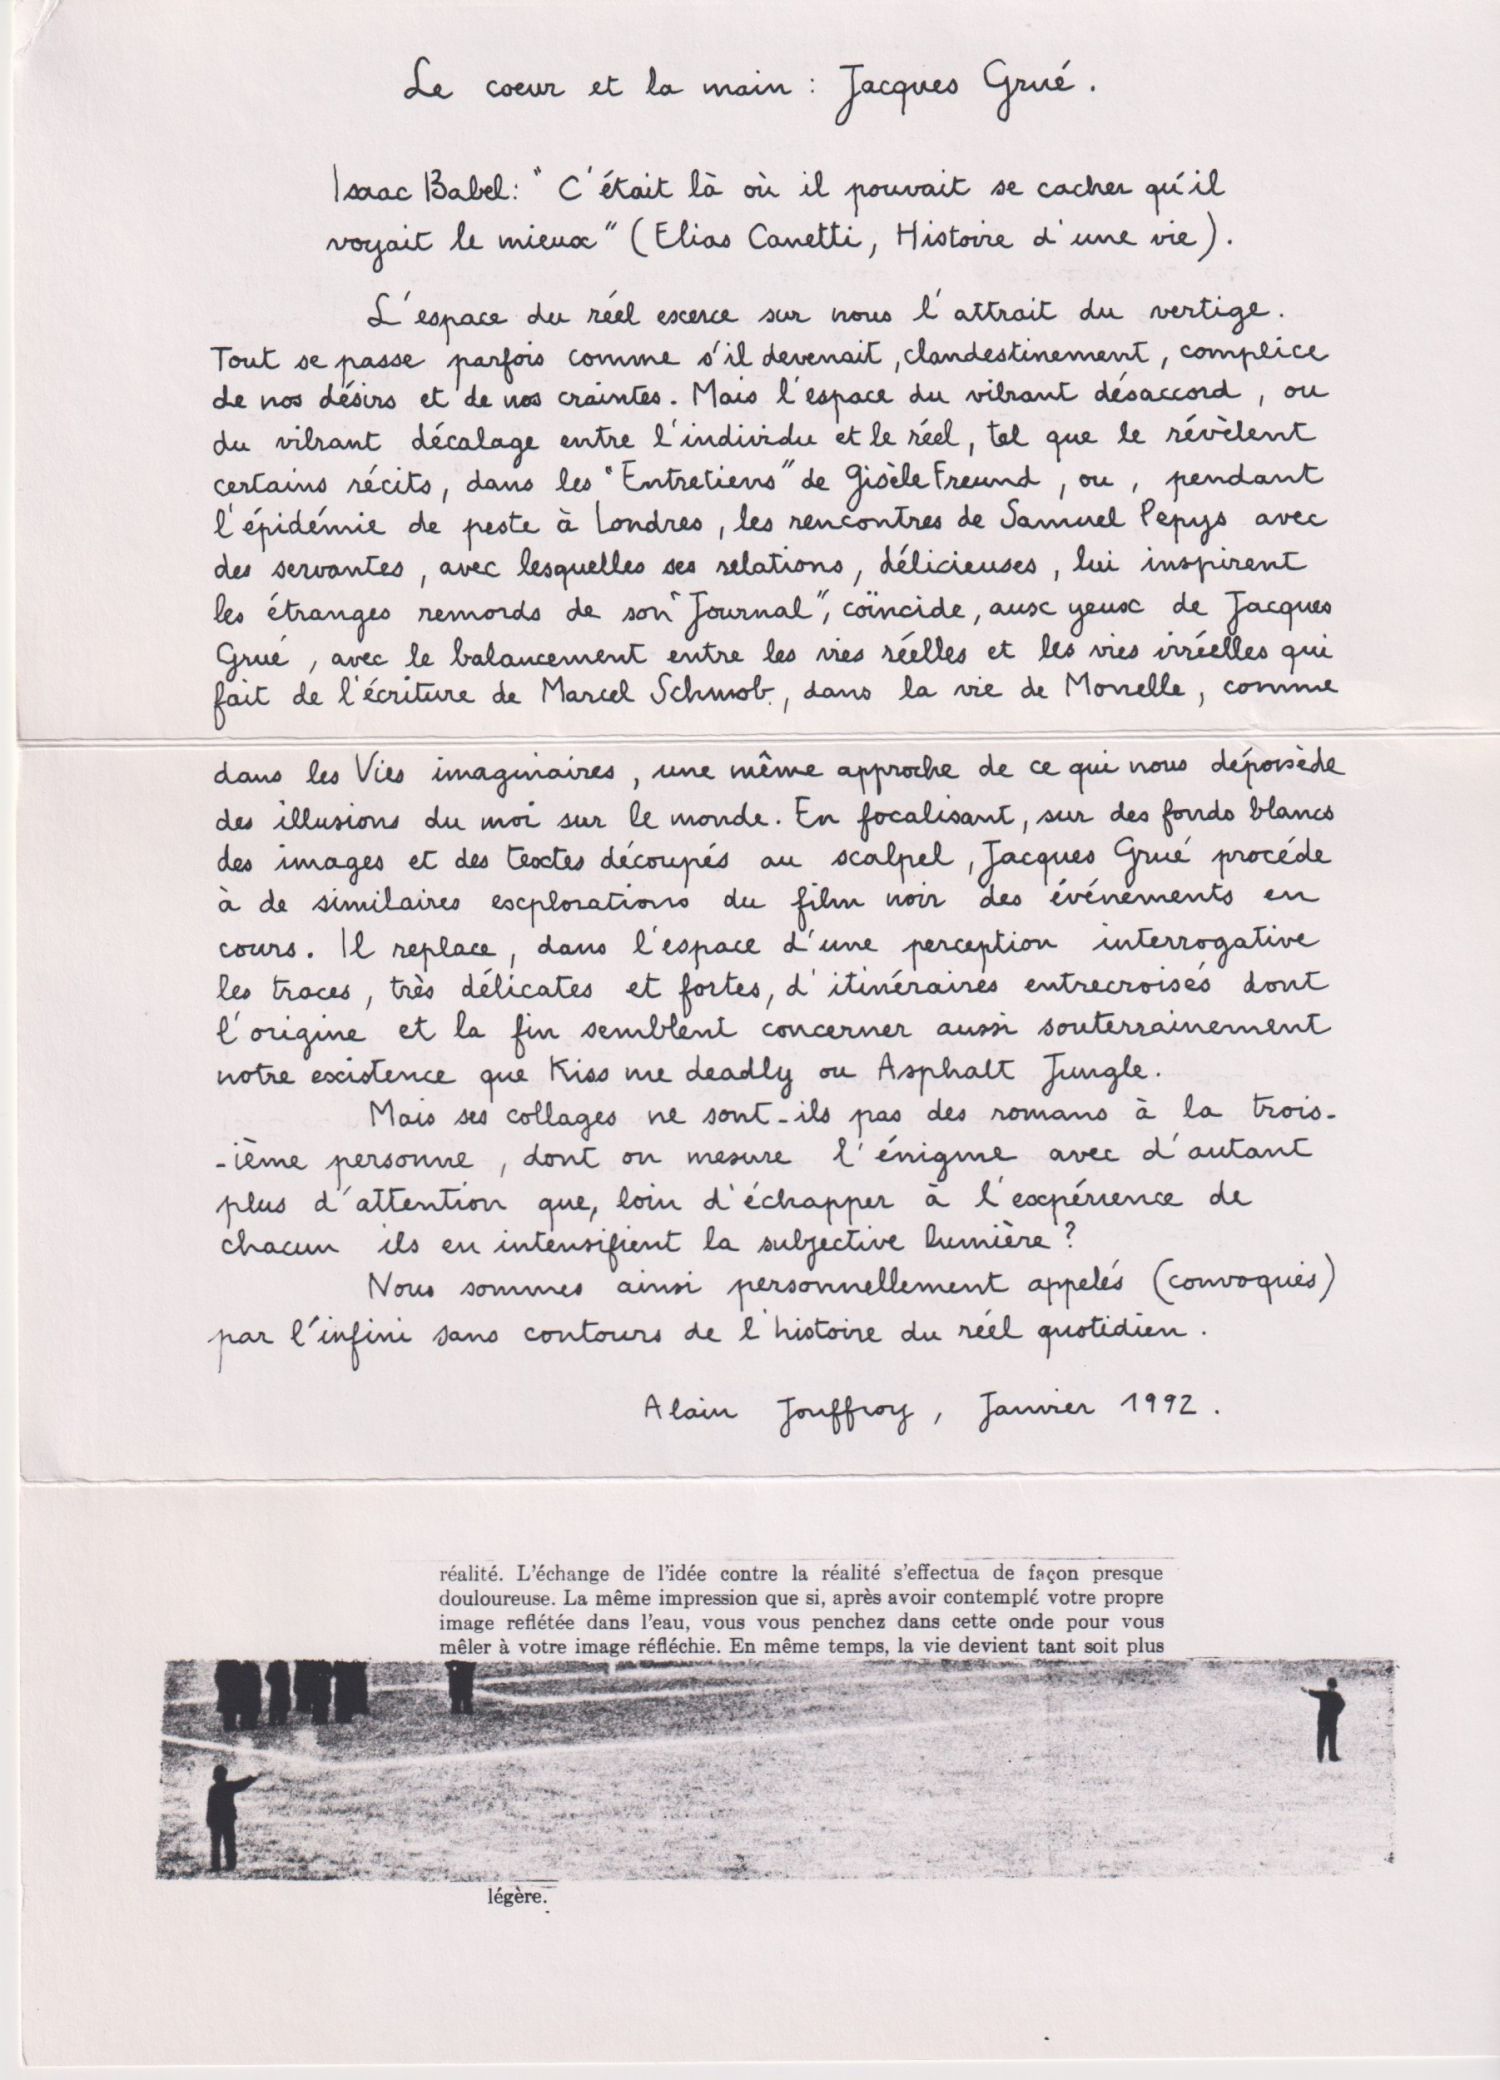 Le coeur et la main : Jacques Grué.
Isaac Babel : " C'était là où il pouvait se cacher qu'il
voyait le mieux " (Elias Canetti, Histoire d'une vie).
L'espace du réel exerce sur nous l'attrait du vertige.
Tout se passe parfois comme s'il devenait, clandestinement, complice
de nos désirs et de nos craintes. Mais l'espace du vibrant désaccord, ou
du vibrant décalage entre l'individu et le réel, tel que le révèlent
certains récits, dans les "Entretiens" de Gisèle Freund, ou, pendant
l'épidémie de peste à Londres, les rencontres de Samuel Pepys avec
des servantes, avec lesquelles ses relations, délicieuses, lui inspirent
les étranges remords de son "Journal", coïncide, aux yeux de Jacques
Grué, avec le balancement entre les vies réelles et les vies irréelles qui
fait de l'écriture de Marcel Schwob, dans la vie de Monelle, comme
dans les Vies imaginaires, une même approche de ce qui nous dépossède
des illusions du moi sur le monde. En focalisant, sur des fonds blancs
des images et des textes découpés au scalpel, Jacques Grué procéde
à de similaires explorations du film noir des événements en
cours. Il replace, dans l'espace d'une perception interrogative
les traces, très délicates et fortes, d'itinéraires entrecroisés dont
l'origine et la fin semblent concerner aussi souterrainement
notre existence que Kiss me deadly ou Asphalt Jungle.
Mais ses collages ne sont-ils pas des romans à la trois-
-ième personne, dont on mesure l'énigme avec d'autant
plus d'attention que, loin d'échapper à l'expérience de
chacun ils en intensifient la subjective lumière ?
Nous sommes ainsi personnellement appelés (convoqués)
par l'infini sans contours de l'histoire du réel quotidien.
Alain Jouffroy, Janvier 1992.
réalité. L'échange de l'idée contre la réalité s'effectua de façon presque
douloureuse. La même impression que si, après avoir contemplé votre propre
image reflétée dans l'eau, vous vous penchez dans cette onde pour vous
mêler à votre image réfléchie. En même temps, la vie devient tant soit plus
légère.